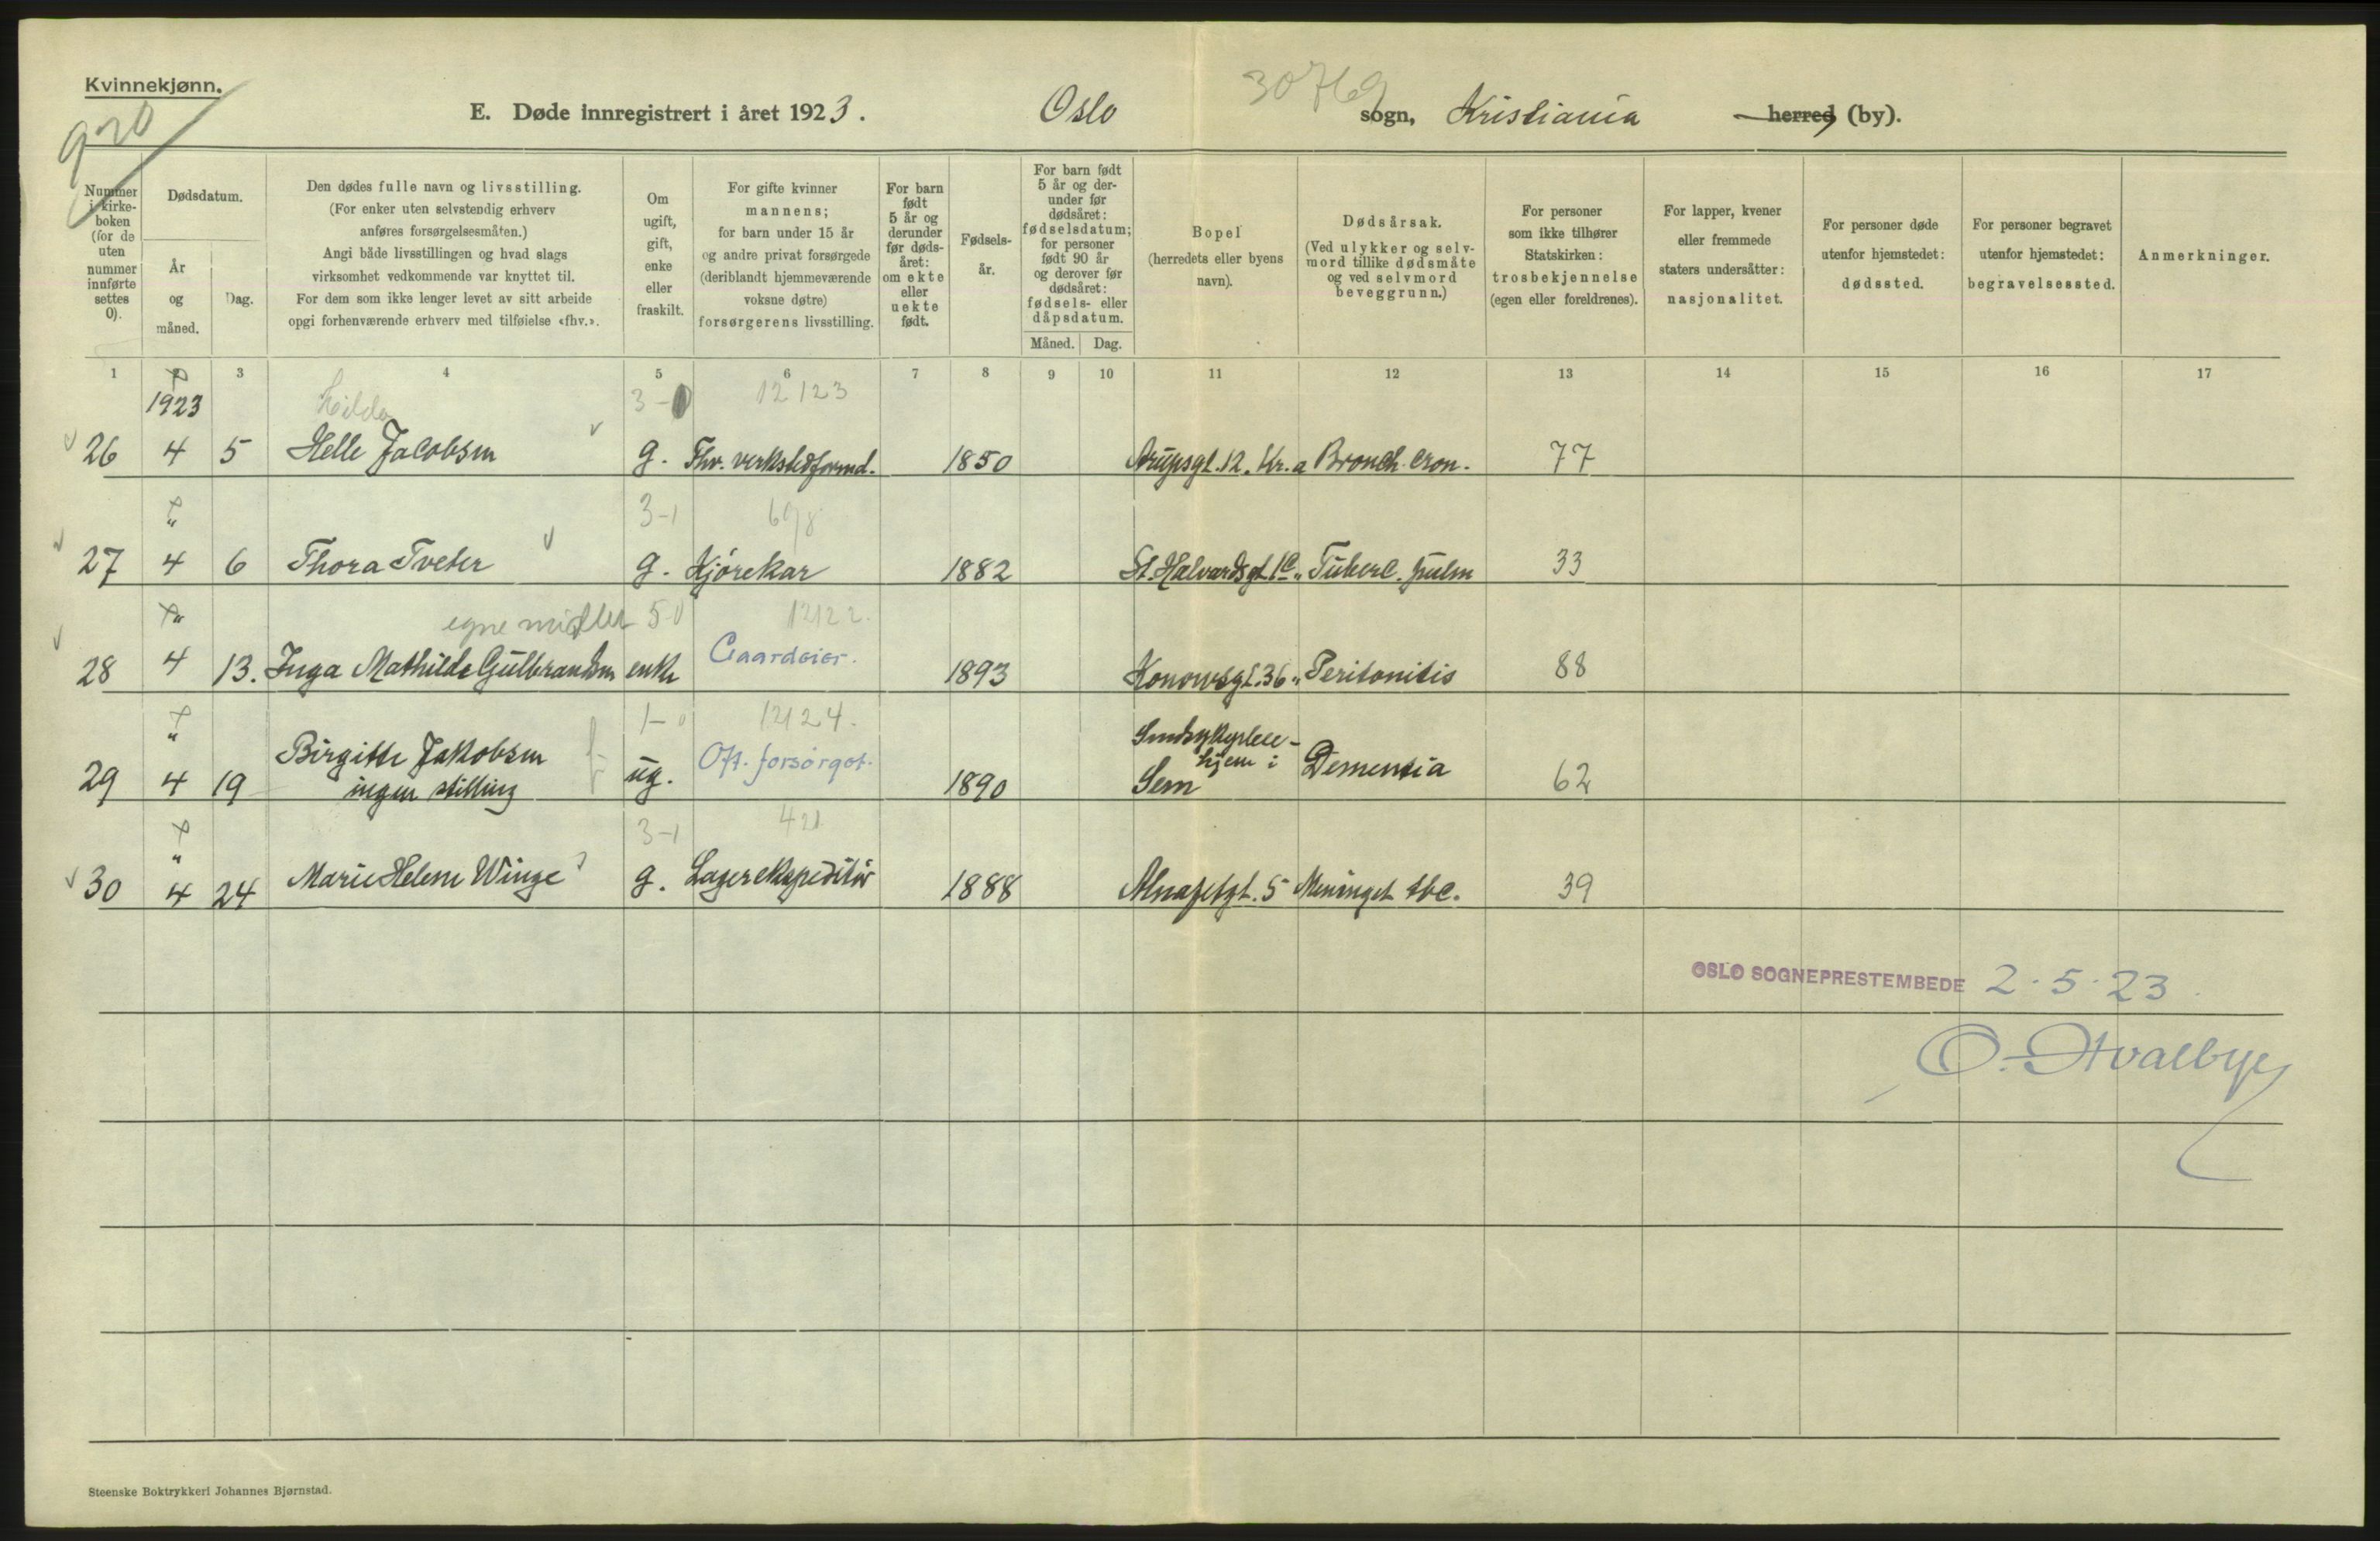 Kvinnekjønn.
920
E. Døde innregistrert i året 1923. Oslo sogn, Kristiania herred (by).
30769
Nummer i kirkeboken (for de uten nummer innførte settes 0).
Dødsdatum.
År og måned.
Dag.
Den dødes fulle navn og livsstilling.
(For enker uten selvstendig erhverv
anføres forsørgelsesmåten.)
Angi både livsstillingen og hvad slags
virksomhet vedkommende var knyttet til.
For dem som ikke lenger levet av sitt arbeide
opgi forhenværende erhverv med tilføielse «fhv.».
Om ugift, gift, enke eller fraskilt.
For gifte kvinner
mannens;
for barn under 15 år
og andre privat forsørgede
(deriblandt hjemmeværende
voksne døtre)
forsørgerens livsstilling.
For barn født 5 år og derunder før dødsåret: om ekte eller uekte født.
Fødselsår.
For barn født 5 år og derunder før dødsåret: fødselsdatum; for personer født 90 år og derover før dødsåret: fødsels- eller dåpsdatum.
Måned. Dag.
Bopel
(herredets eller byens
navn).
Dødsårsak.
(Ved ulykker og selvmord tillike dødsmåte og ved selvmord beveggrunn.)
For personer
som ikke tilhører
Statskirken:
trosbekjennelse
(egen eller foreldrenes).
For lapper, kvener
eller fremmede
staters undersåtter:
nasjonalitet.
For personer døde
utenfor hjemstedet:
dødssted.
For personer begravet
utenfor hjemstedet:
begravelsessted.
Anmerkninger.
1 3 4 5 6 7 8 9 10 11 12 13 14 15 16 17
1923 Hilda 3-0 12123
26 4 5 Helle Jacobsen g. Fhv. verkstedformd. 1850 Arupsgt. 12. Kr.a Bronch. cron. 77
" 3-1 698
27 4 6 Thora Tveter g. Kjørekar 1882 St. Halvardsgt. 1c " Tuberc. pulm 33
" egne midler 5-0 12122.
28 4 13. Inga Mathilde Gulbrandsen enke Gaardeier. 1893 Konowsgt. 36 " Peritonitis 88
" 1-0 12124.
29 4 19 Birgitte Jakobsen
ingen stilling ug. Off. forsørget. 1890 Sindsykepleie-
hjem i
Sem Dementia 62
" 3-1 421
30 4 24 Marie Helene Winge g. Lagerekspeditør 1888 Alnafetgt. 5 Meninget tbc. 39
OSLO SOGNEPRESTEMBEDE 2.5.23
O. Hvalbye
Steenske Boktrykkeri Johannes Bjørnstad.